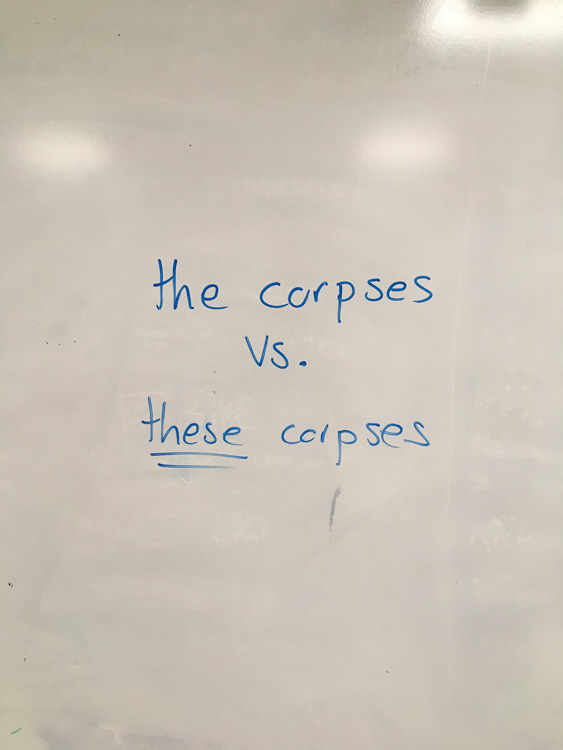 the corpses
vs.
these corpses